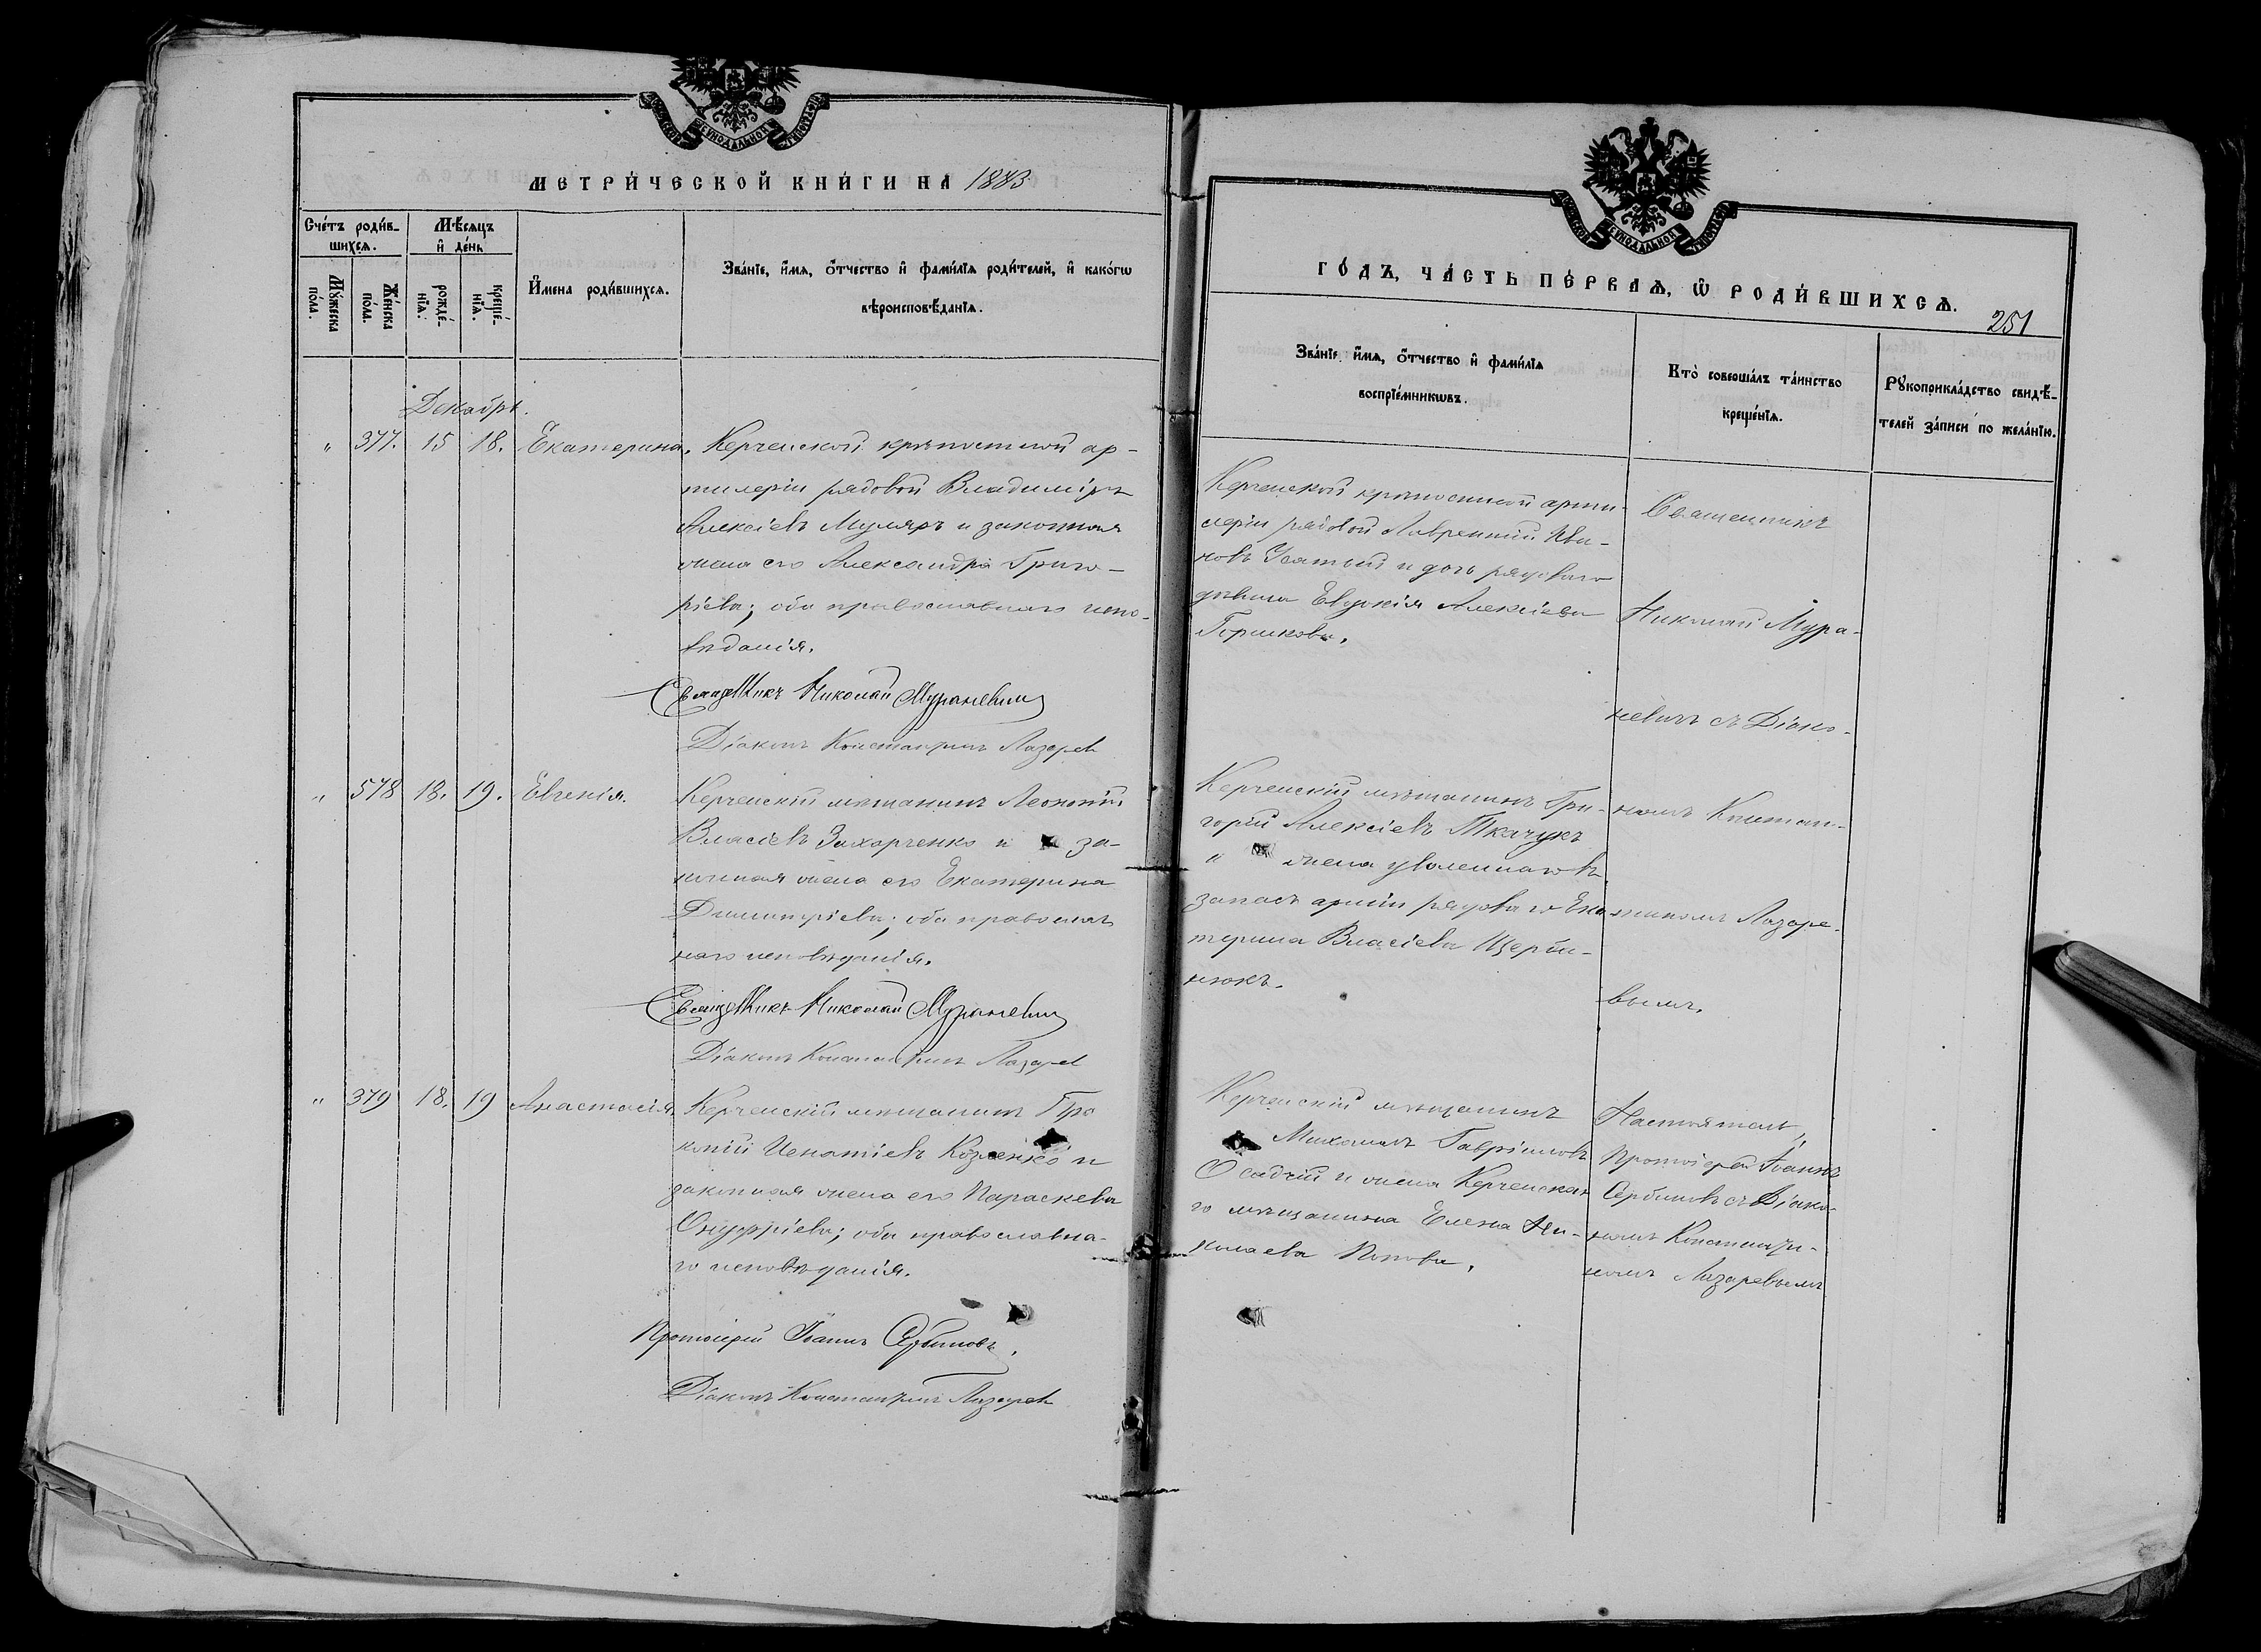 МОСКОВСКОЙ СѴНОДАЛЬНОЙ ТИПОГРАФІИ
МЕТРИ́ЧЕСКОЙ КНИ́ГИ НА 1883
Сче́тъ роди́в-
шихсѧ.
Мѣ́сѧцъ
и҆ де́нь
Мꙋ́жеска по́ла.
Же́нска по́ла.
рожде́-
нїѧ.
креще́-
нїѧ.
И҆мена̀ роди́вшихсѧ.
Зва́нїе, и҆́мѧ, ѻ҆́тчество и҆ фами́лїѧ роди́телей, и҆ како́гѡ
вѣроисповѣ́данїѧ.
Декабрь.
" 377. 15 18. Екатерина.
Керченской крѣпостной ар-
тилеріи рядовой Владиміръ
Алексіевъ Муляръ и законная
жена его Александра Григо-
ріева; оба православнаго испо-
вѣданія.
Священникъ Николай Мураневичъ
Діаконъ Константинъ Лазарев
" 578 18. 19. Евгенія.
Керченскій мѣщанинъ Леонтій
Власіевъ Захарченко и за-
конная жена его Екатерина
Димитріева; оба православ
наго исповѣданія.
Священникъ Николай Мураневичъ
Діаконъ Константинъ Лазарев
" 379 18. 19 Анастасія.
Керченскій мѣщанинъ Про
копій Игнатіевъ Козленко и
законная жена его Параскева
Онуфріева; оба православна-
го исповѣданія.
Протоіерей Іоаннъ Сербиновъ.
Діаконъ Константинъ Лазарев
МОСКОВСКОЙ СѴНОДАЛЬНОЙ ТИПОГРАФІИ
ГО́ДЪ, ЧА́СТЬ ПЕ́РВАѦ, Ѡ҆ РОДИ́ВШИХСѦ.
251
Зва́нїе, и҆́мѧ, ѻ҆́тчество и҆ фами́лїѧ
воспрїе́мникѡвъ.
Кто̀ соверша́лъ та́инство
креще́нїѧ.
Рꙋкоприкла́дство свидѣ́-
телей за́писи по жела́нїю.
Керченской крѣпостной арти-
леріи рядовой Лаврентій Ива-
новъ Усатый и дочь рядоваго
дѣвица Евдокія Алексіева
Горшкова.
Священникъ
Николай Мура-
невичъ съ Діако-
номъ Констан-
тиномъ Лазаре-
вымъ.
Керченскій мѣщанинъ Гри-
горій Алексіевъ Ткачукъ
и жена уволеннаго въ
запасъ арміи рядоваго Ека
терина Власіева Щерби-
нюкъ.
Керченскій мѣщанинъ
Михаилъ Гавріиловъ
Осадчій и жена Керченска
го мѣщанина Елена Ни-
колаева Попова.
Настоятель,
Протоіерей Іоаннъ
Сербиновъ съ Діако-
номъ Константи-
номъ Лазаревымъ